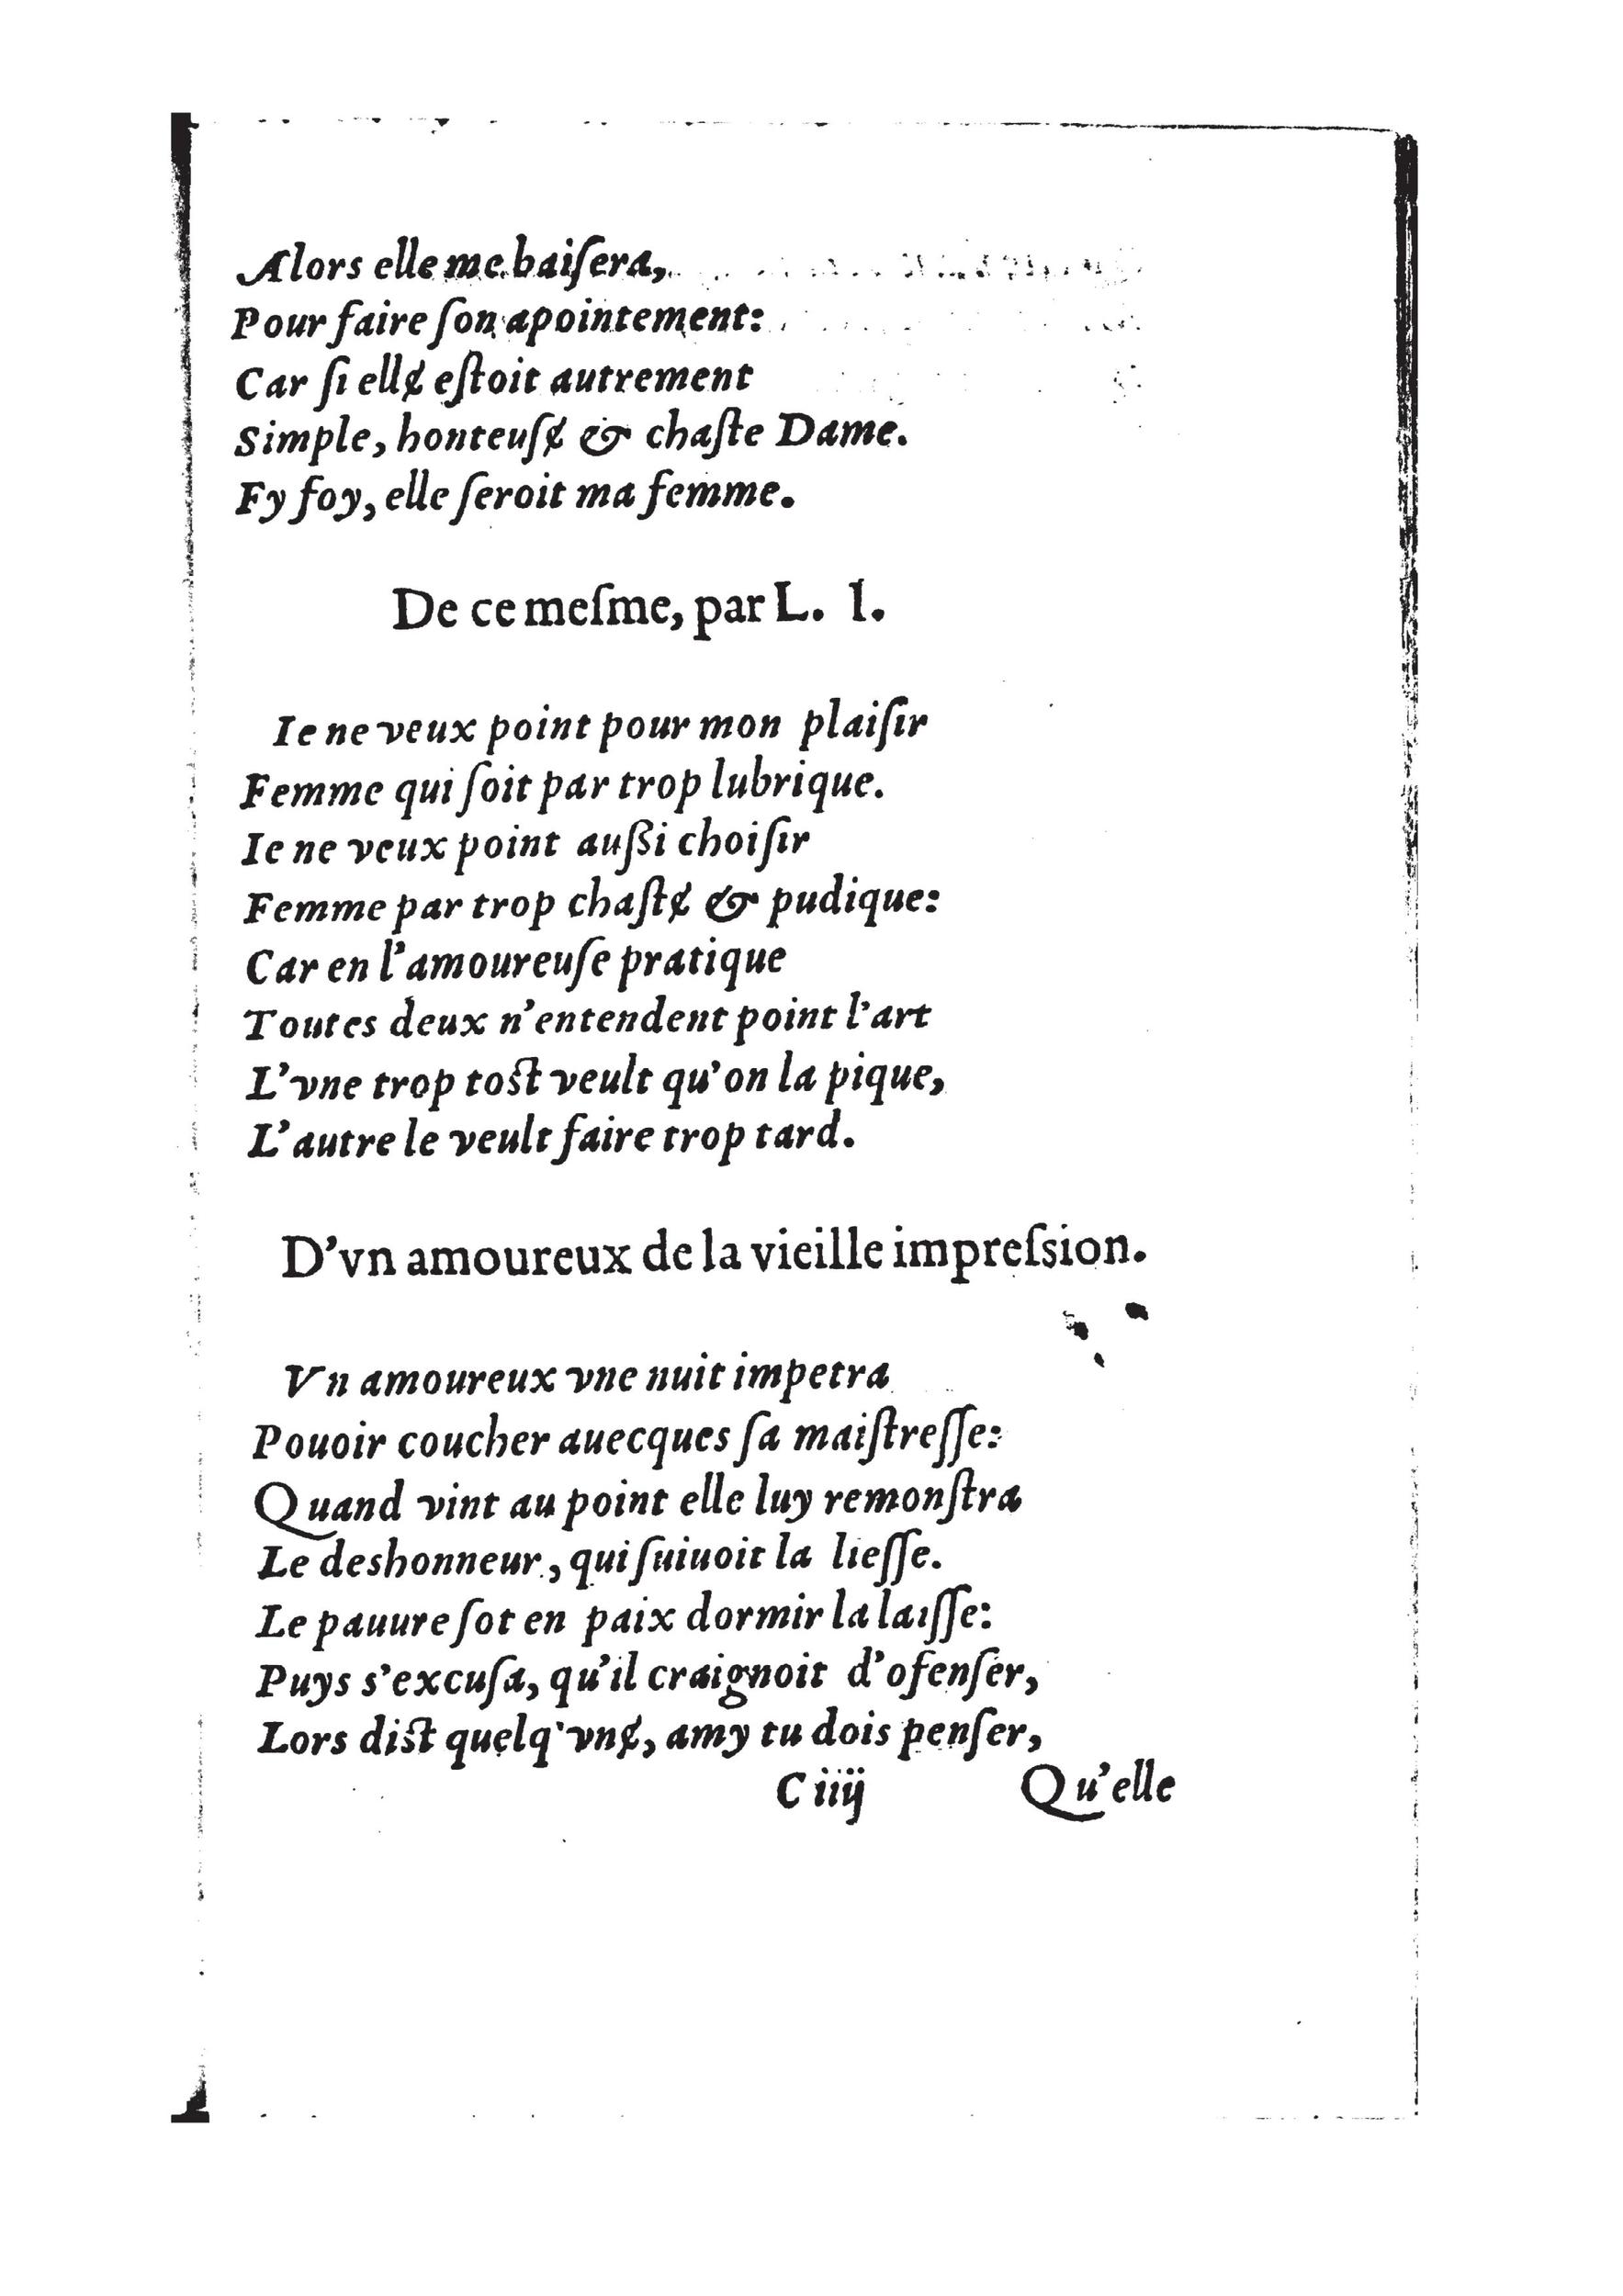 Alors elle me baiſera,
Pour faire ſon apointement:
Car ſi ellɇ eſtoit autrement
Simple, honteuſɇ & chaſte Dame.
Fy foy, elle ſeroit ma femme.
De ce meſme, par L. I.
Ie ne veux point pour mon plaiſir
Femme qui ſoit par trop lubrique.
Ie ne veux point auſſi choiſir
Femme par trop chaſtɇ & pudique:
Car en l'amoureuſe pratique
Toutes deux n'entendent point l'art
L'vne trop toſt veult qu'on la pique,
L'autre le veult faire trop tard.
D'vn amoureux de la vieille impreſsion.
Vn amoureux vne nuit impetra
Pouoir coucher auecques ſa maiſtreſſe:
Quand vint au point elle luy remonſtra
Le deshonneur, qui ſuiuoit la lieſſe.
Le pauure ſot en paix dormir la laiſſe:
Puys s'excuſa, qu'il craignoit d'ofenſer,
Lors diſt quelq'vnɇ, amy tu dois penſer,
C iiij Qu'elle